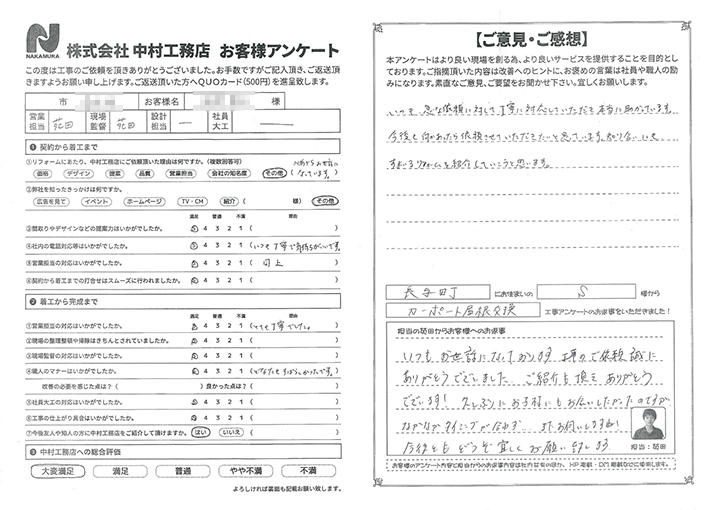 NAKAMURA
株式会社 中村工務店 お客様アンケート
この度は工事のご依頼を頂きありがとうございました。お手数ですがご記入頂き、ご返送頂
きますようお願い申し上げます。ご返送頂いた方へQUOカード(500円)を進呈致します。
市 お客様名 様
営業担当 苑田 現場監督 苑田 設計担当 ー 社員大工 ー
❶ 契約から着工まで
①リフォームにあたり、中村工務店にご依頼頂いた理由は何ですか。(複数回答可)
価格 デザイン 提案 品質 営業担当 会社の知名度 その他 (以前からお世話になっています。)
②弊社を知ったきっかけは何ですか。
広告を見て イベント ホームページ TV・CM 紹介 ( 様) その他
満足 普通 不満 理由
③間取りやデザインなどの提案力はいかがでしたか。 5 4 3 2 1 ( )
④社内の電話対応等はいかがでしたか。 5 4 3 2 1 (いつも丁寧で気持ちがいいです。)
⑤営業担当の対応はいかがでしたか。 5 4 3 2 1 ( 同上 )
⑥契約から着工までの打合せはスムーズに行われましたか。 5 4 3 2 1 ( )
❷ 着工から完成まで
満足 普通 不満 理由
①営業担当の対応はいかがでしたか。 5 4 3 2 1 (とても丁寧でした。)
②現場の整理整頓や掃除はきちんとされていましたか。 5 4 3 2 1 ( )
③現場監督の対応はいかがでしたか。 5 4 3 2 1 ( )
④職人のマナーはいかがでしたか。 5 4 3 2 1 (どなたもすばらしかったです。)
改善の必要を感じた点は?( )良かった点は?( )
⑤社員大工の対応はいかがでしたか。 5 4 3 2 1 ( )
⑥工事の仕上がり具合はいかがですか。 5 4 3 2 1 ( )
⑦今後友人や知人の方に中村工務店をご紹介して頂けますか。 はい いいえ ( )
❸ 中村工務店への総合評価
大変満足 満足 普通 やや不満 不満
よろしければ裏面も記載お願い致します。
【ご意見・ご感想】
本アンケートはより良い現場を創る為、より良いサービスを提供することを目的とし
ております。ご指摘頂いた内容は改善へのヒントに、お褒めの言葉は社員や職人の励
みになります。素直なご意見、ご要望をお聞かせ下さい。宜しくお願いします。
いつも急な依頼に対して丁寧に対応していただき本当に助かっています。
今後も何かあったら依頼させていただきたいと思っています。知り合いにも
リフォームを紹介していこうと思います。
長与町 にお住まいの S 様から
カーポート屋根交換 工事アンケートのお返事をいただきました!
担当の苑田からお客様へのお返事
いつもお世話になっております 工事のご依頼誠に
ありがとうございました ご紹介も頂き ありがとう
ございます! 久しぶりにお子様にもお会いしたかったのですが
なかなかタイミングが合わず またお伺いしますね!
今後ともどうぞ宜しくお願い致します
担当:苑田